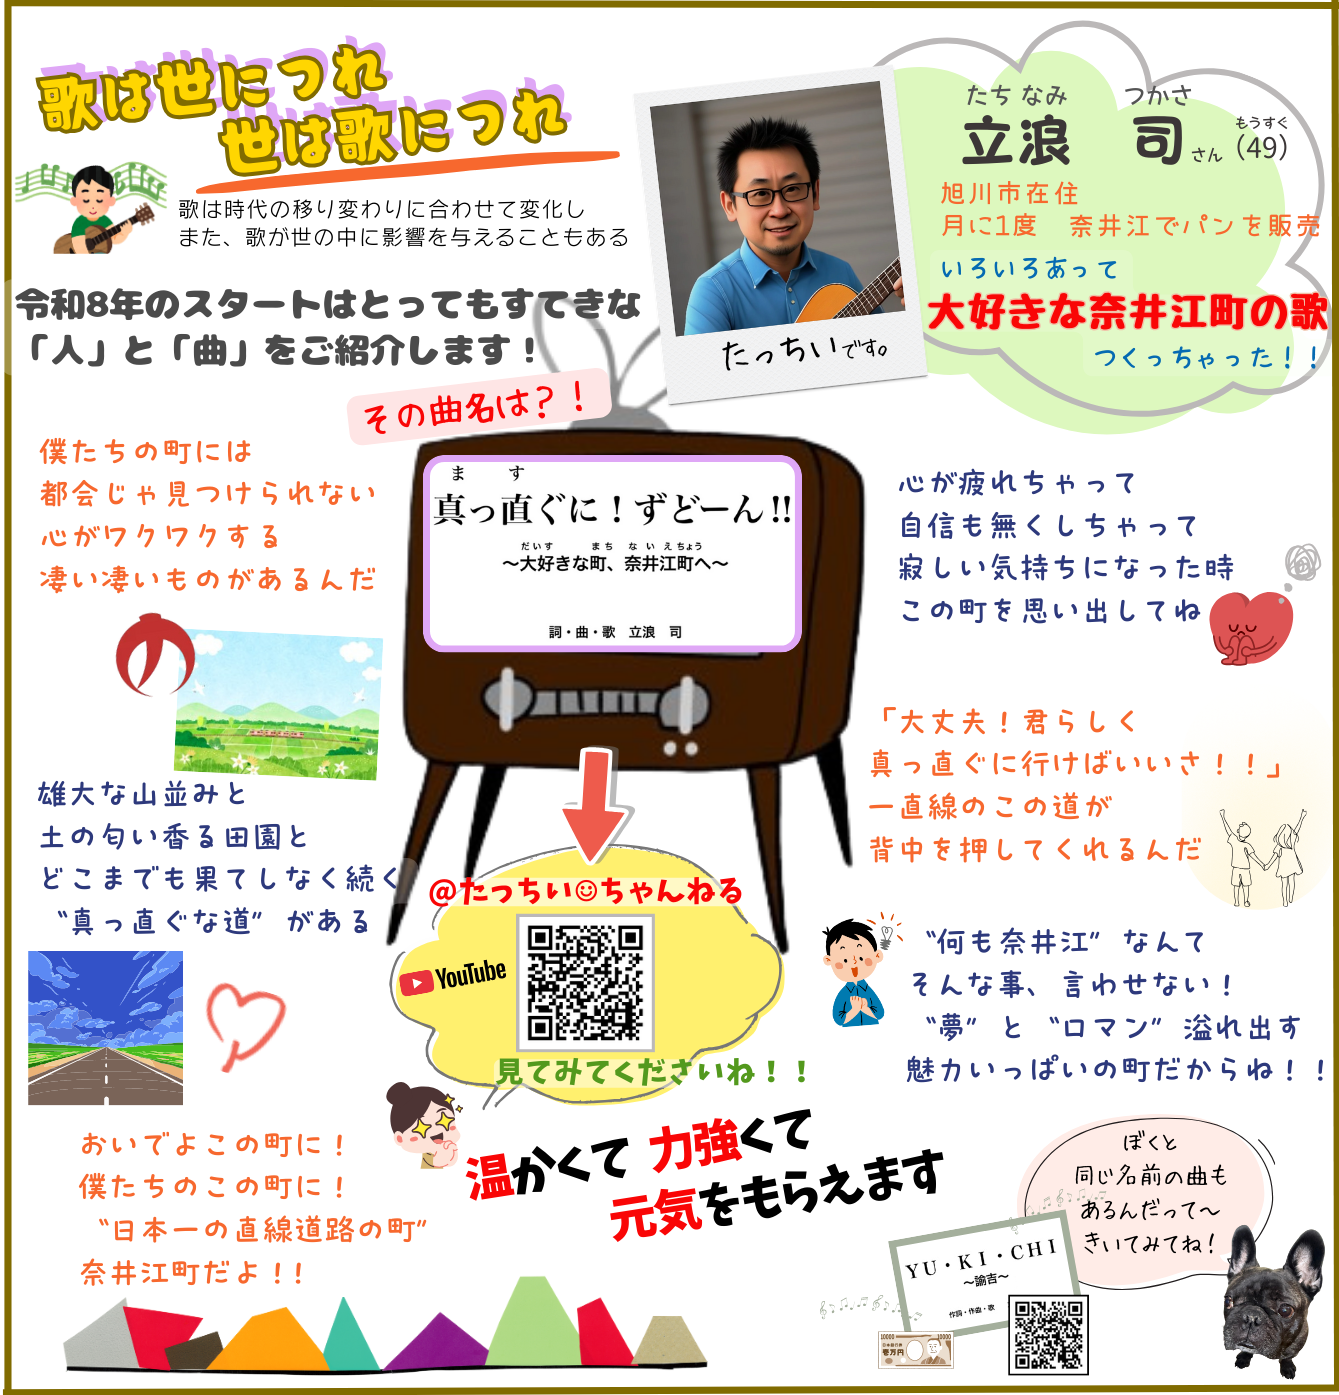 歌は世につれ
世は歌につれ
歌は時代の移り変わりに合わせて変化し
また、歌が世の中に影響を与えることもある
令和8年のスタートはとってもすてきな
「人」と「曲」をご紹介します！
たっちいです。
たち なみ つかさ
立浪 司さん (49)
もうすぐ
旭川市在住
月に1度 奈井江でパンを販売
いろいろあって
大好きな奈井江町の歌
つくっちゃった！！
その曲名は？！
ま す
真っ直ぐに！ずどーん!!
だいす まち な い え ちょう
～大好きな町、奈井江町へ～
詞・曲・歌 立浪 司
僕たちの町には
都会じゃ見つけられない
心がワクワクする
凄い凄いものがあるんだ
雄大な山並みと
土の匂い香る田園と
どこまでも果てしなく続く
〝真っ直ぐな道〟がある
おいでよこの町に！
僕たちのこの町に！
〝日本一の直線道路の町〟
奈井江町だよ！！
心が疲れちゃって
自信も無くしちゃって
寂しい気持ちになった時
この町を思い出してね
「大丈夫！君らしく
真っ直ぐに行けばいいさ！！」
一直線のこの道が
背中を押してくれるんだ
〝何も奈井江〟なんて
そんな事、言わせない！
〝夢〟と〝ロマン〟溢れ出す
魅力いっぱいの町だからね！！
@たっちい☺ちゃんねる
YouTube
見てみてくださいね！！
温かくて 力強くて
元気をもらえます
ぼくと
同じ名前の曲も
あるんだって～
きいてみてね！
YU・KI・CHI
～諭吉～
作詞・作曲・歌
10000 10000
壱万円